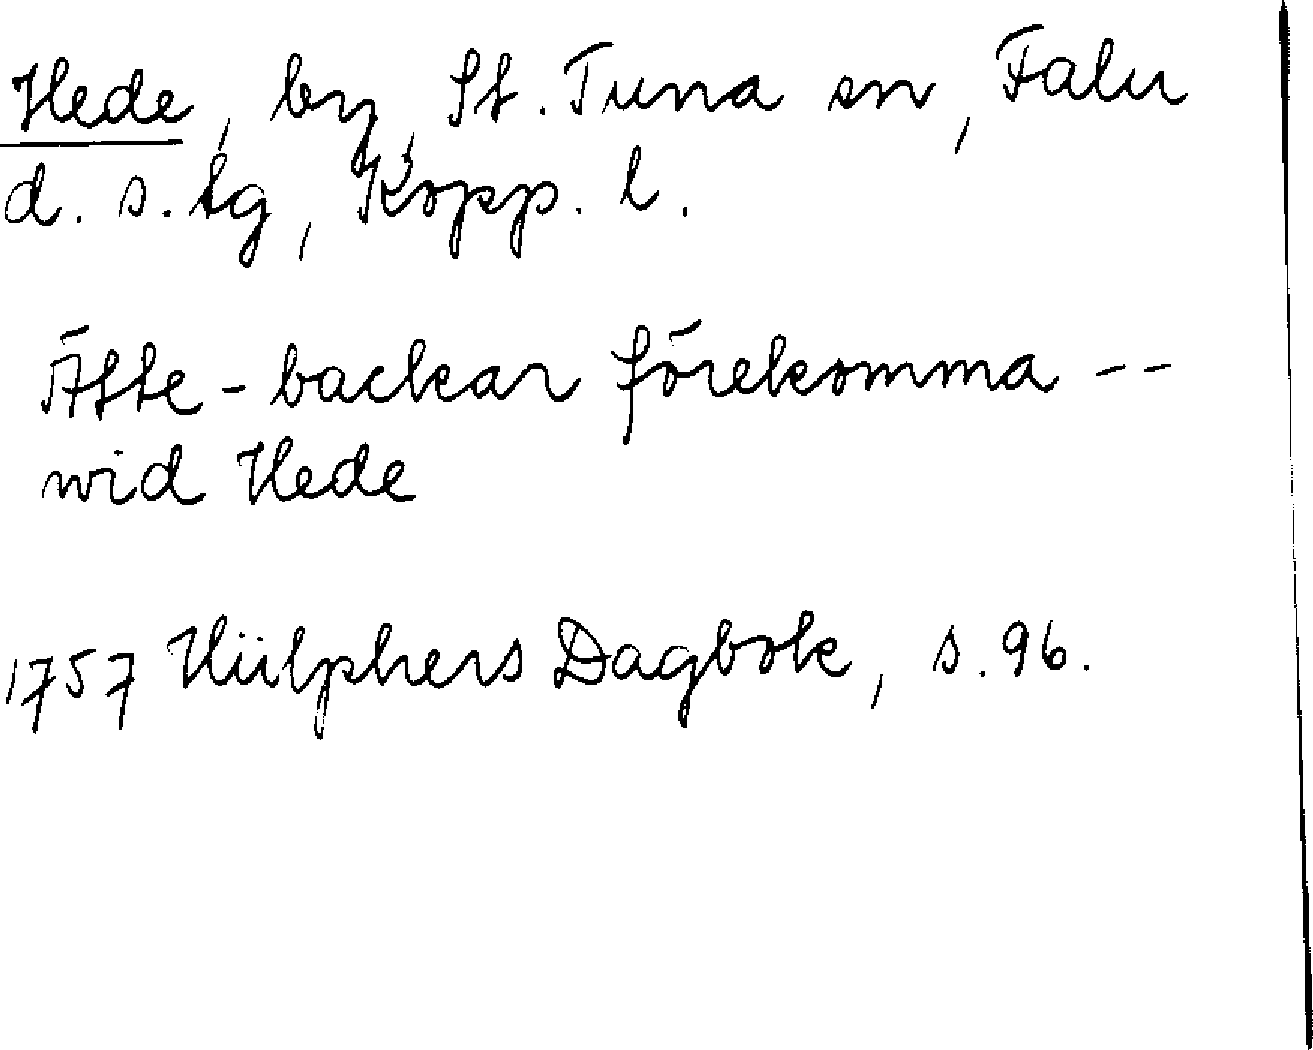 Hede, by, St. Tuna sn, Falu
d. s. tg, Kopp. l.
Ätte-backar förekomma --
wid Hede
1757 Hülphers Dagbok, s. 96.